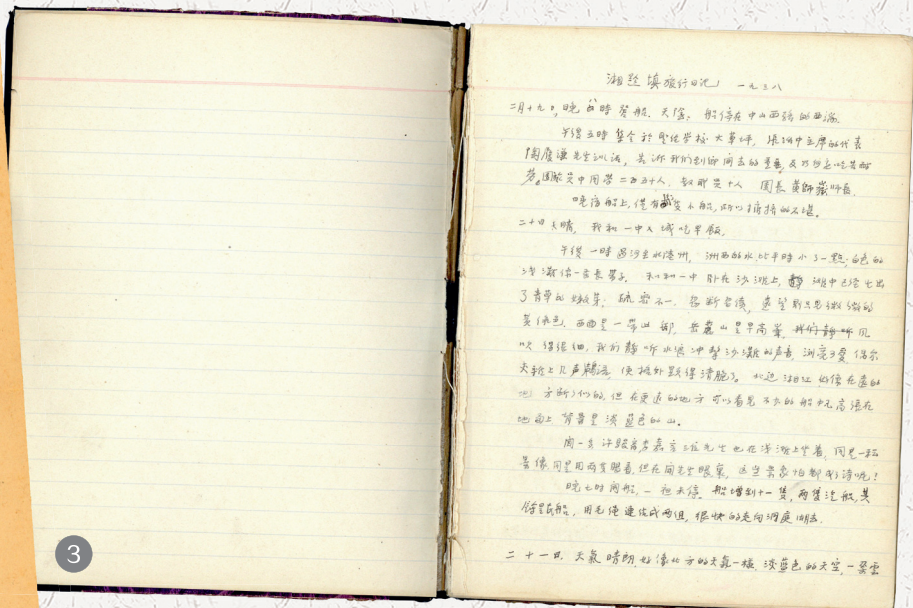 湘黔滇旅行日记 一九三八
二月十九日,晚 时登船。天阴。船停在中山西路的西端。
午后五时集合于圣经学校大草坪,张治中主席的代表
陶履谦先生训话,告诉我们到前
劳。团 共中同学二百五十人,教职员十人 团长黄师岳师长。
晚宿船上,仅有 隻小船,所以拥挤的不堪。
二十日 大晴,我和一中入城吃早饭。
午后一时过江至水陆洲,洲西的水比平时小了一点,白色的
沙滩像一条长带子。利 一中卧在沙滩上, 滩中已经七出
了青草的嫩芽;疏密不一,若断若续,远望则只见微微的
黄绿色。西面是一带山乡,岳麓山是早高峯,我们静听风
吹 得很细,我们静听水浪冲击沙滩的声音,浏亮可爱偶尔
天艶上几声鸥语,便格外显得清脆了。北边湘江好像在远的
地方断了似的,但在更远的地方可以看见不少的船帆高张在
地面上,背景是淡蓝色的山。
闻一多 许骏斋 李嘉言三位先生也在浅滩上坐着,同是一般
景像,同是用两隻眼看,但在闻先生眼裏,这些景象怕都成了诗呢!
晚七时开船,一夜未停。船增到十一隻,两隻汽船,其
馀是民船,用毛绳连佐成两组,很快的走向洞庭湖去。
二十一日,天气晴朗,好像北方的天气一样。淡蓝色的天空,一朵雲
3